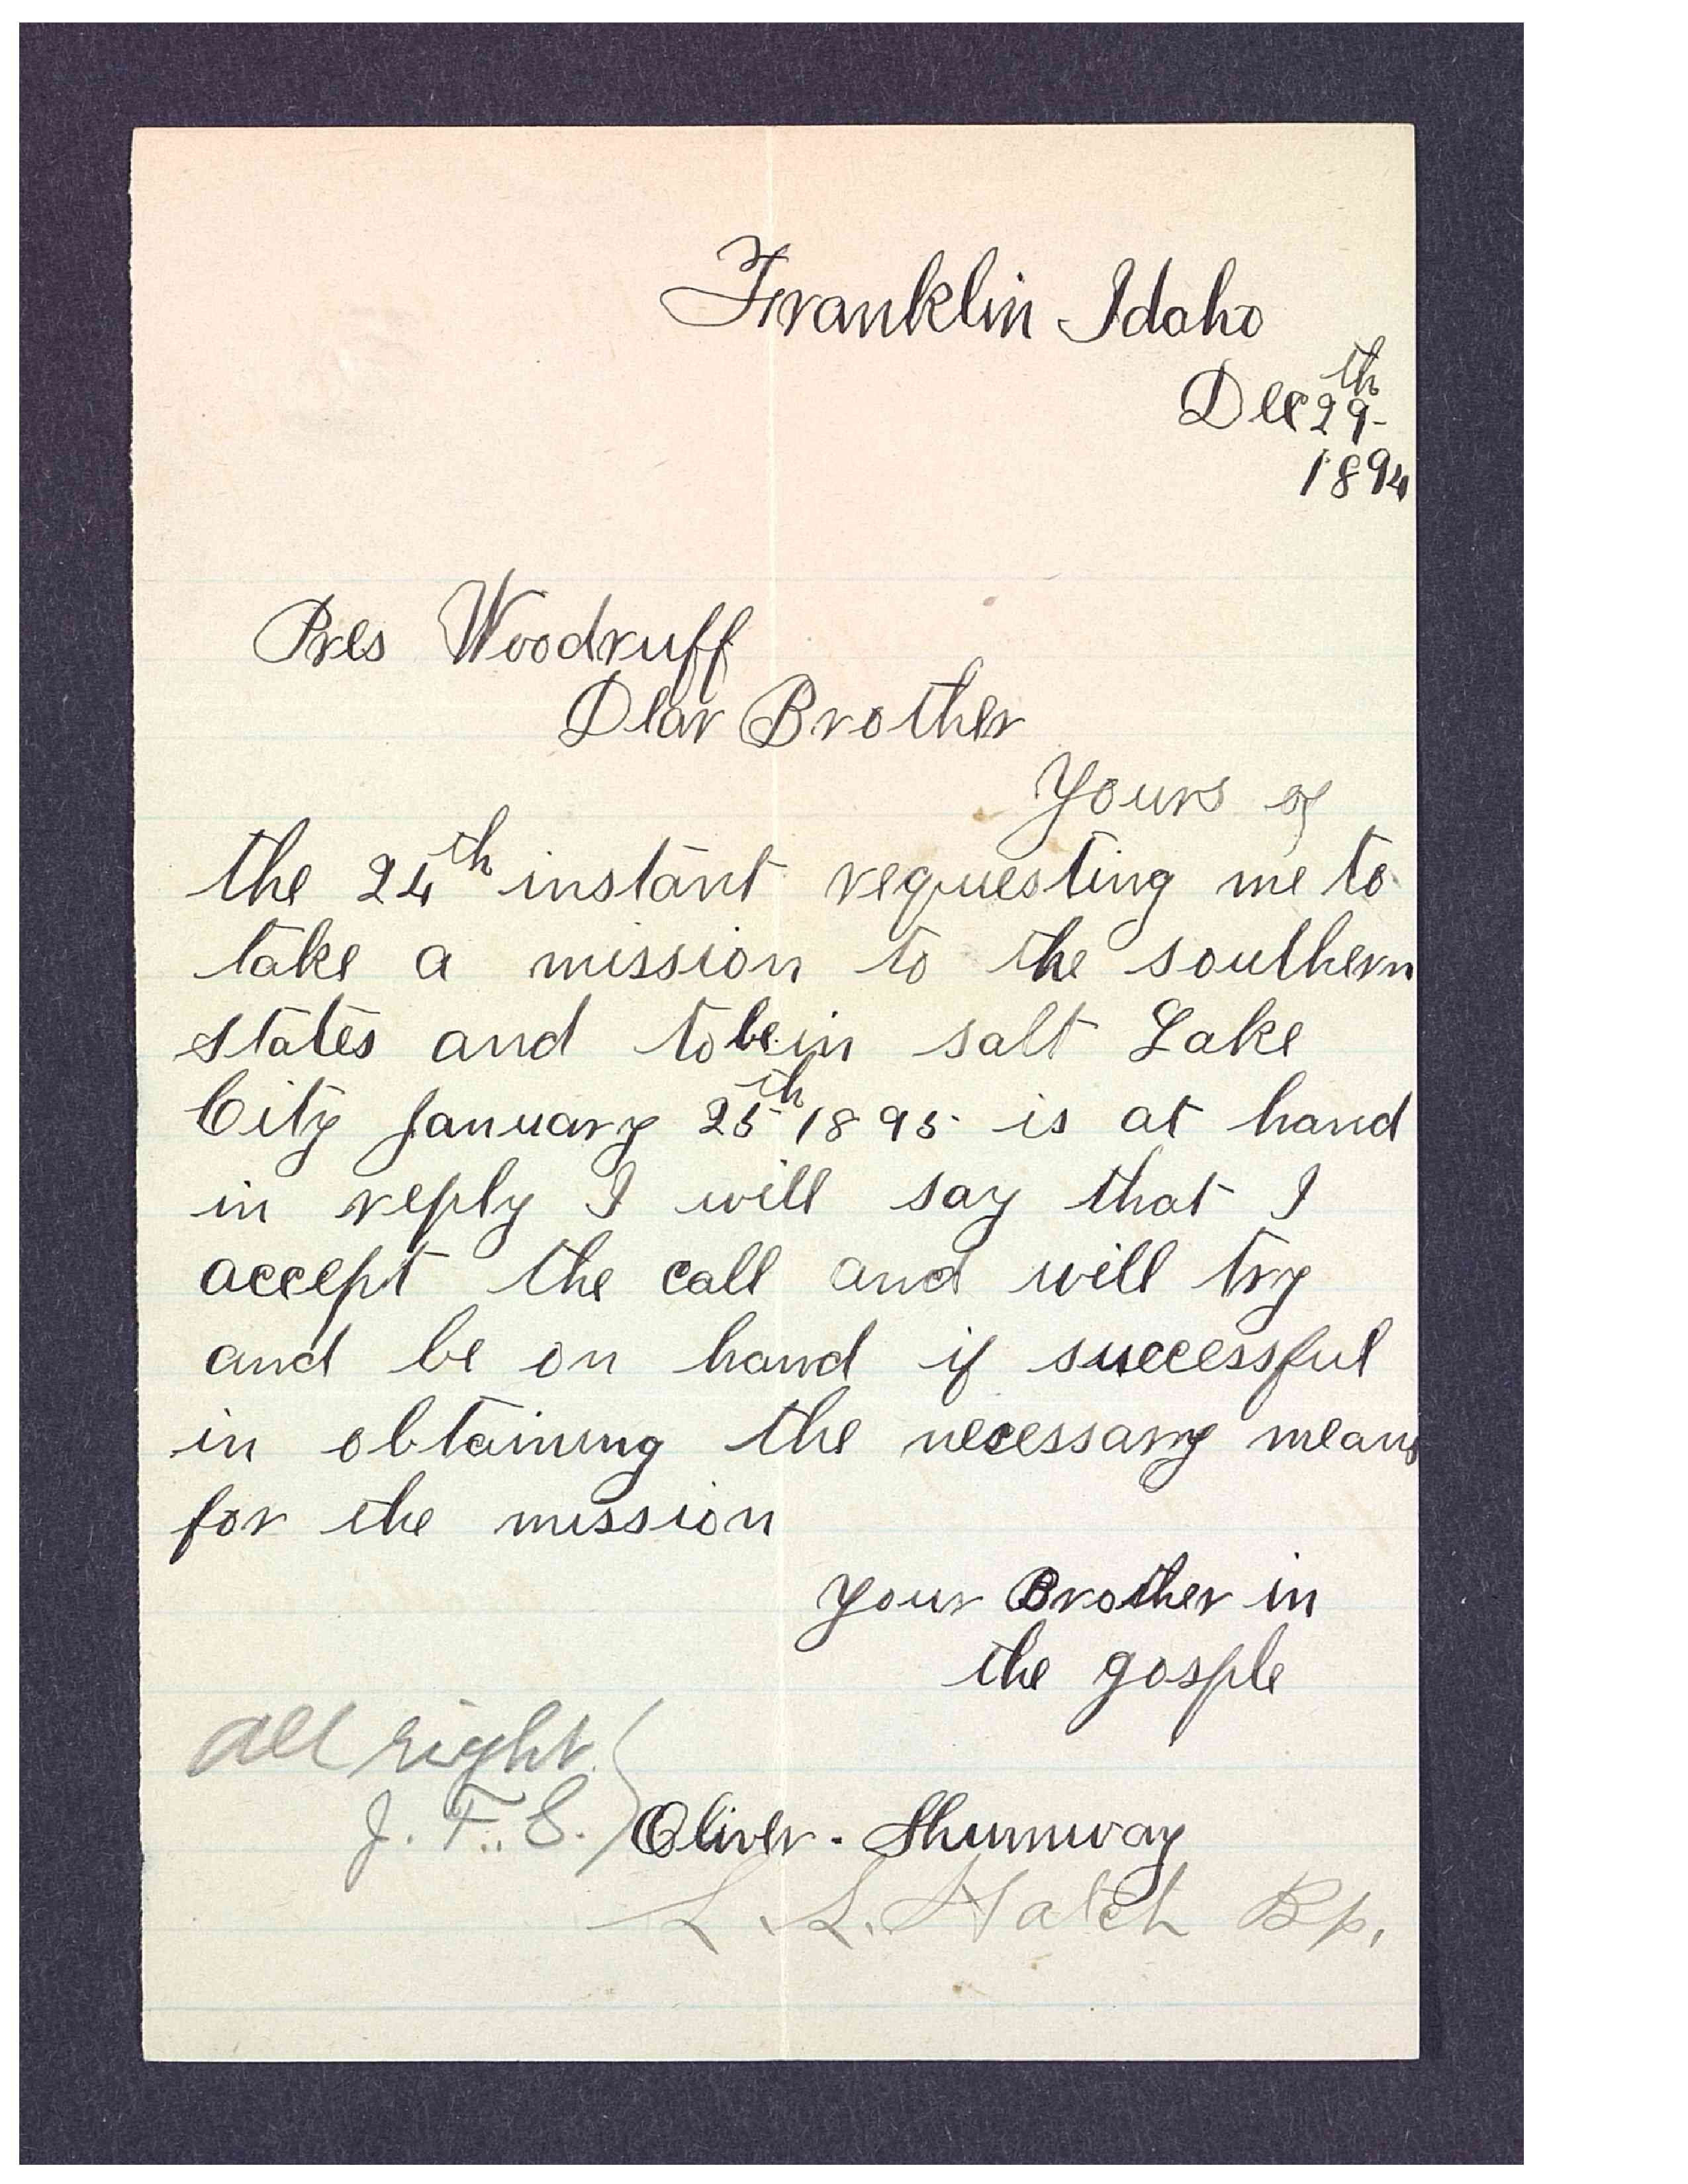 Franklin Idaho
Dec 29th
1894
Pres Woodruff
Dear Brother
Yours of
the 24th instant requesting me to
take a mission to the southern
states and to be in salt Lake
City January 25th 1895 is at hand
in reply I will say that I
accept the call and will try
and be on hand if successful
in obtaining the necessary means
for the mission
your Brother in
the gosple
All right.
J. F. S.
Oliver. Shumway
L. L. Hatch Bp.